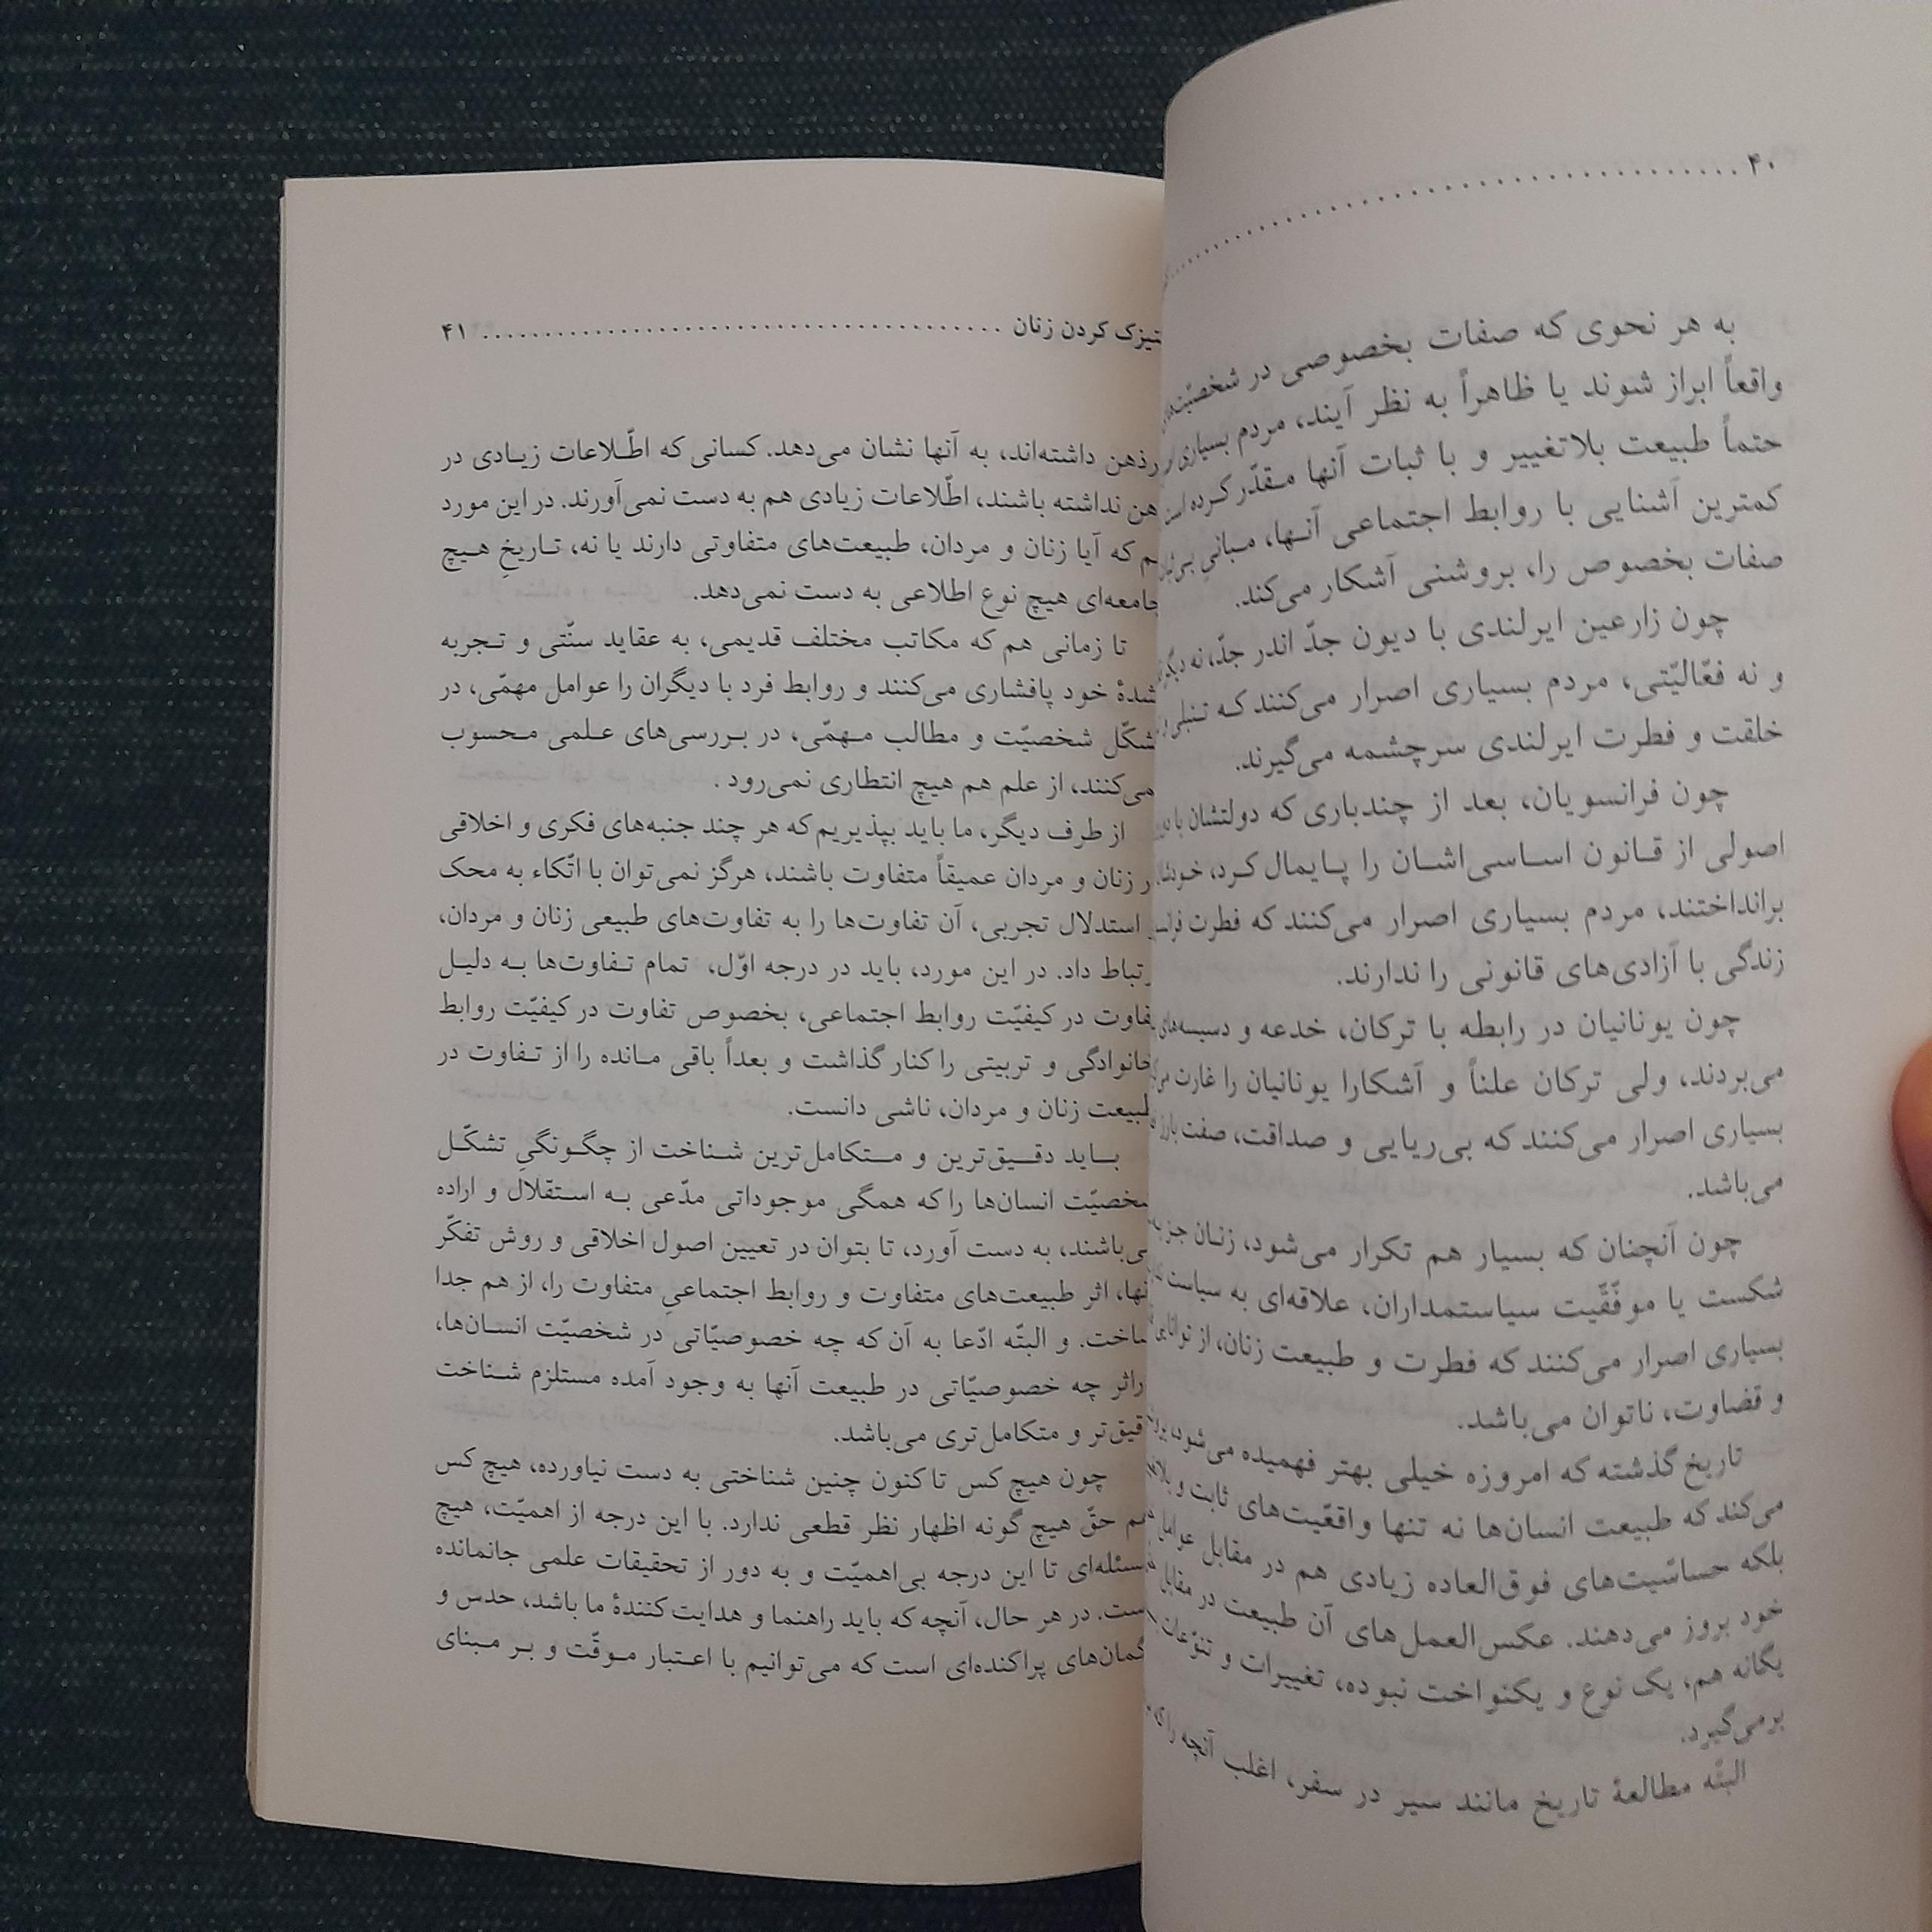 ۴۰
به هر نحوی که صفات بخصوصی در
واقعاً ابراز شوند یا ظاهراً به نظر آیند، مردم بسیاری
حتماً طبیعت بلاتغییر و با ثبات آنها مقدّر کرده
کمترین آشنایی با روابط اجتماعی آنها، مبانی
صفات بخصوص را، بروشنی آشکار می‌کند.
چون زارعین ایرلندی با دیون جدّ اندر جدّ، نه
و نه فعّالیّتی، مردم بسیاری اصرار می‌کنند که تنبلی
خلقت و فطرت ایرلندی سرچشمه می‌گیرند.
چون فرانسویان، بعد از چندباری که دولتشان
اصولی از قانون اساسی‌اشان را پایمال کرد،
برانداختند، مردم بسیاری اصرار می‌کنند که فطرت
زندگی با آزادی‌های قانونی را ندارند.
چون یونانیان در رابطه با ترکان، خدعه و دسیسه‌های
می‌بردند، ولی ترکان علناً و آشکارا یونانیان را غارت
بسیاری اصرار می‌کنند که بی‌ریایی و صداقت، صفت بارز
می‌باشد.
چون آنچنان که بسیار هم تکرار می‌شود، زنان جز
شکست یا موفّقیت سیاستمداران، علاقه‌ای به سیاست
بسیاری اصرار می‌کنند که فطرت و طبیعت زنان، از
و قضاوت، ناتوان می‌باشد.
تاریخ گذشته که امروزه خیلی بهتر فهمیده می‌شود،
می‌کند که طبیعت انسان‌ها نه تنها واقعّیت‌های ثابت و
بلکه حساسّیت‌های فوق‌العاده زیادی هم در مقابل عوامل
خود بروز می‌دهند. عکس‌العمل‌های آن طبیعت در مقابل
یگانه هم، یک نوع و یکنواخت نبوده، تغییرات و تنوّعات
برمی‌گیرد.
البتّه مطالعهٔ تاریخ مانند سیر در سفر، اغلب آنچه را که
کردن زنان ۴۱
داشته‌اند، به آنها نشان می‌دهد. کسانی که اطّلاعات زیادی در
نداشته باشند، اطّلاعات زیادی هم به دست نمی‌آورند. در این مورد
که آیا زنان و مردان، طبیعت‌های متفاوتی دارند یا نه، تاریخِ هیچ
جامعه‌ای هیچ نوع اطلاعی به دست نمی‌دهد.
تا زمانی هم که مکاتب مختلف قدیمی، به عقاید سنّتی و تجربه
شدهٔ خود پافشاری می‌کنند و روابط فرد با دیگران را عوامل مهمّی، در
شخصیّت و مطالب مهمّی، در بررسی‌های علمی محسوب
می‌کنند، از علم هم هیچ انتظاری نمی‌رود .
از طرف دیگر، ما باید بپذیریم که هر چند جنبه‌های فکری و اخلاقی
زنان و مردان عمیقاً متفاوت باشند، هرگز نمی‌توان با اتّکاء به محک
استدلال تجربی، آن تفاوت‌ها را به تفاوت‌های طبیعی زنان و مردان،
داد. در این مورد، باید در درجه اوّل، تمام تفاوت‌ها به دلیل
در کیفیّت روابط اجتماعی، بخصوص تفاوت در کیفیّت روابط
خانوادگی و تربیتی را کنار گذاشت و بعداً باقی مانده را از تفاوت در
طبیعت زنان و مردان، ناشی دانست.
باید دقیق‌ترین و متکامل‌ترین شناخت از چگونگیِ تشکّل
انسان‌ها را که همگی موجوداتی مدّعی به استقلال و اراده
می‌باشند، به دست آورد، تا بتوان در تعیین اصول اخلاقی و روش تفکّر
اثر طبیعت‌های متفاوت و روابط اجتماعیِ متفاوت را، از هم جدا
و البتّه ادّعا به آن که چه خصوصیّاتی در شخصیّت انسان‌ها،
چه خصوصیّاتی در طبیعت آنها به وجود آمده مستلزم شناخت
و متکامل‌تری می‌باشد.
چون هیچ کس تاکنون چنین شناختی به دست نیاورده، هیچ کس
حقّ هیچ گونه اظهار نظر قطعی ندارد. با این درجه از اهمیّت، هیچ
تا این درجه بی‌اهمیّت و به دور از تحقیقات علمی جانمانده
در هر حال، آنچه که باید راهنما و هدایت کنندهٔ ما باشد، حدس و
گمان‌های پراکنده‌ای است که می‌توانیم با اعتبار موقّت و بر مبنای